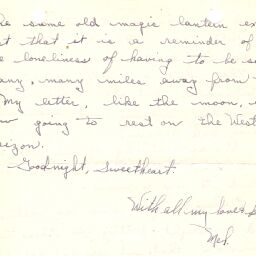 the same old magic lantern ex
st that it is a reminder of
e loneliness of having to be se
any, many miles away from
My letter, like the moon, i
ow going to rest on the West
rizon.
Goodnight, Sweetheart.
With all my love &
Mel.